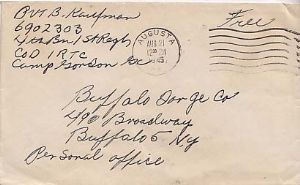 Pvt B. Kaufman
6902303
4th Bn 1st Regt
Co D IRTC
Camp Gordon Ga
Free
AUGUSTA
Buffalo Forge Co
490 Broadway
Buffalo 5 NY
Personal office